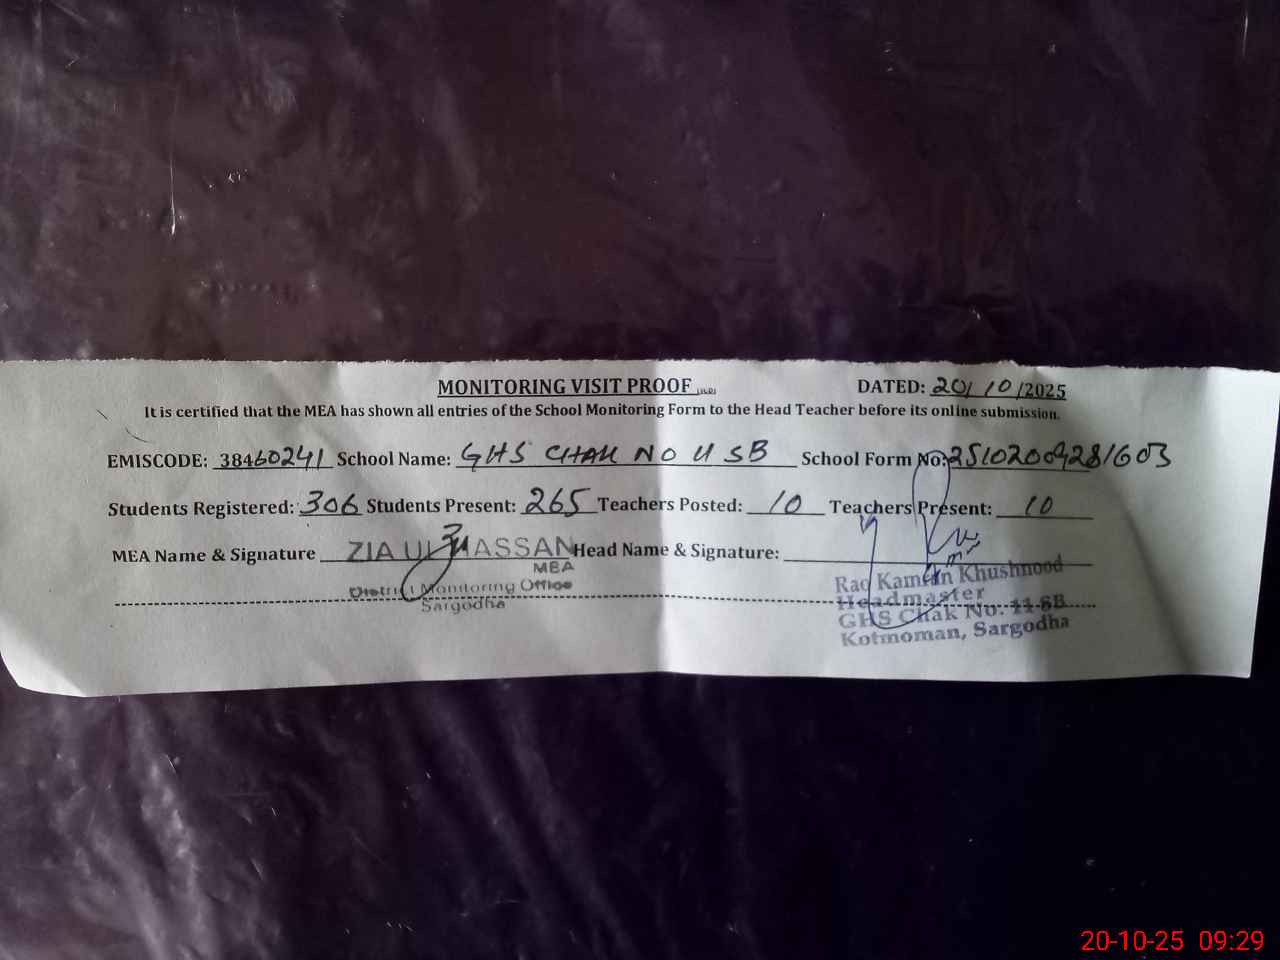 MONITORING VISIT PROOF DATED: 20/10/2025
It is certified that the MEA has shown all entries of the School Monitoring Form to the Head Teacher before its online submission.
EMISCODE: 38460241 School Name: GHS CHAK NO 11 SB School Form No: 25102009281603
Students Registered: 306 Students Present: 265 Teachers Posted: 10 Teachers Present: 10
MEA Name & Signature ZIA UL HASSAN Head Name & Signature:
MEA
District Monitoring Office
Sargodha
Rao Kamran Khushnood
Headmaster
GHS Chak No. 11-SB
Kotmoman, Sargodha
20-10-25 09:29